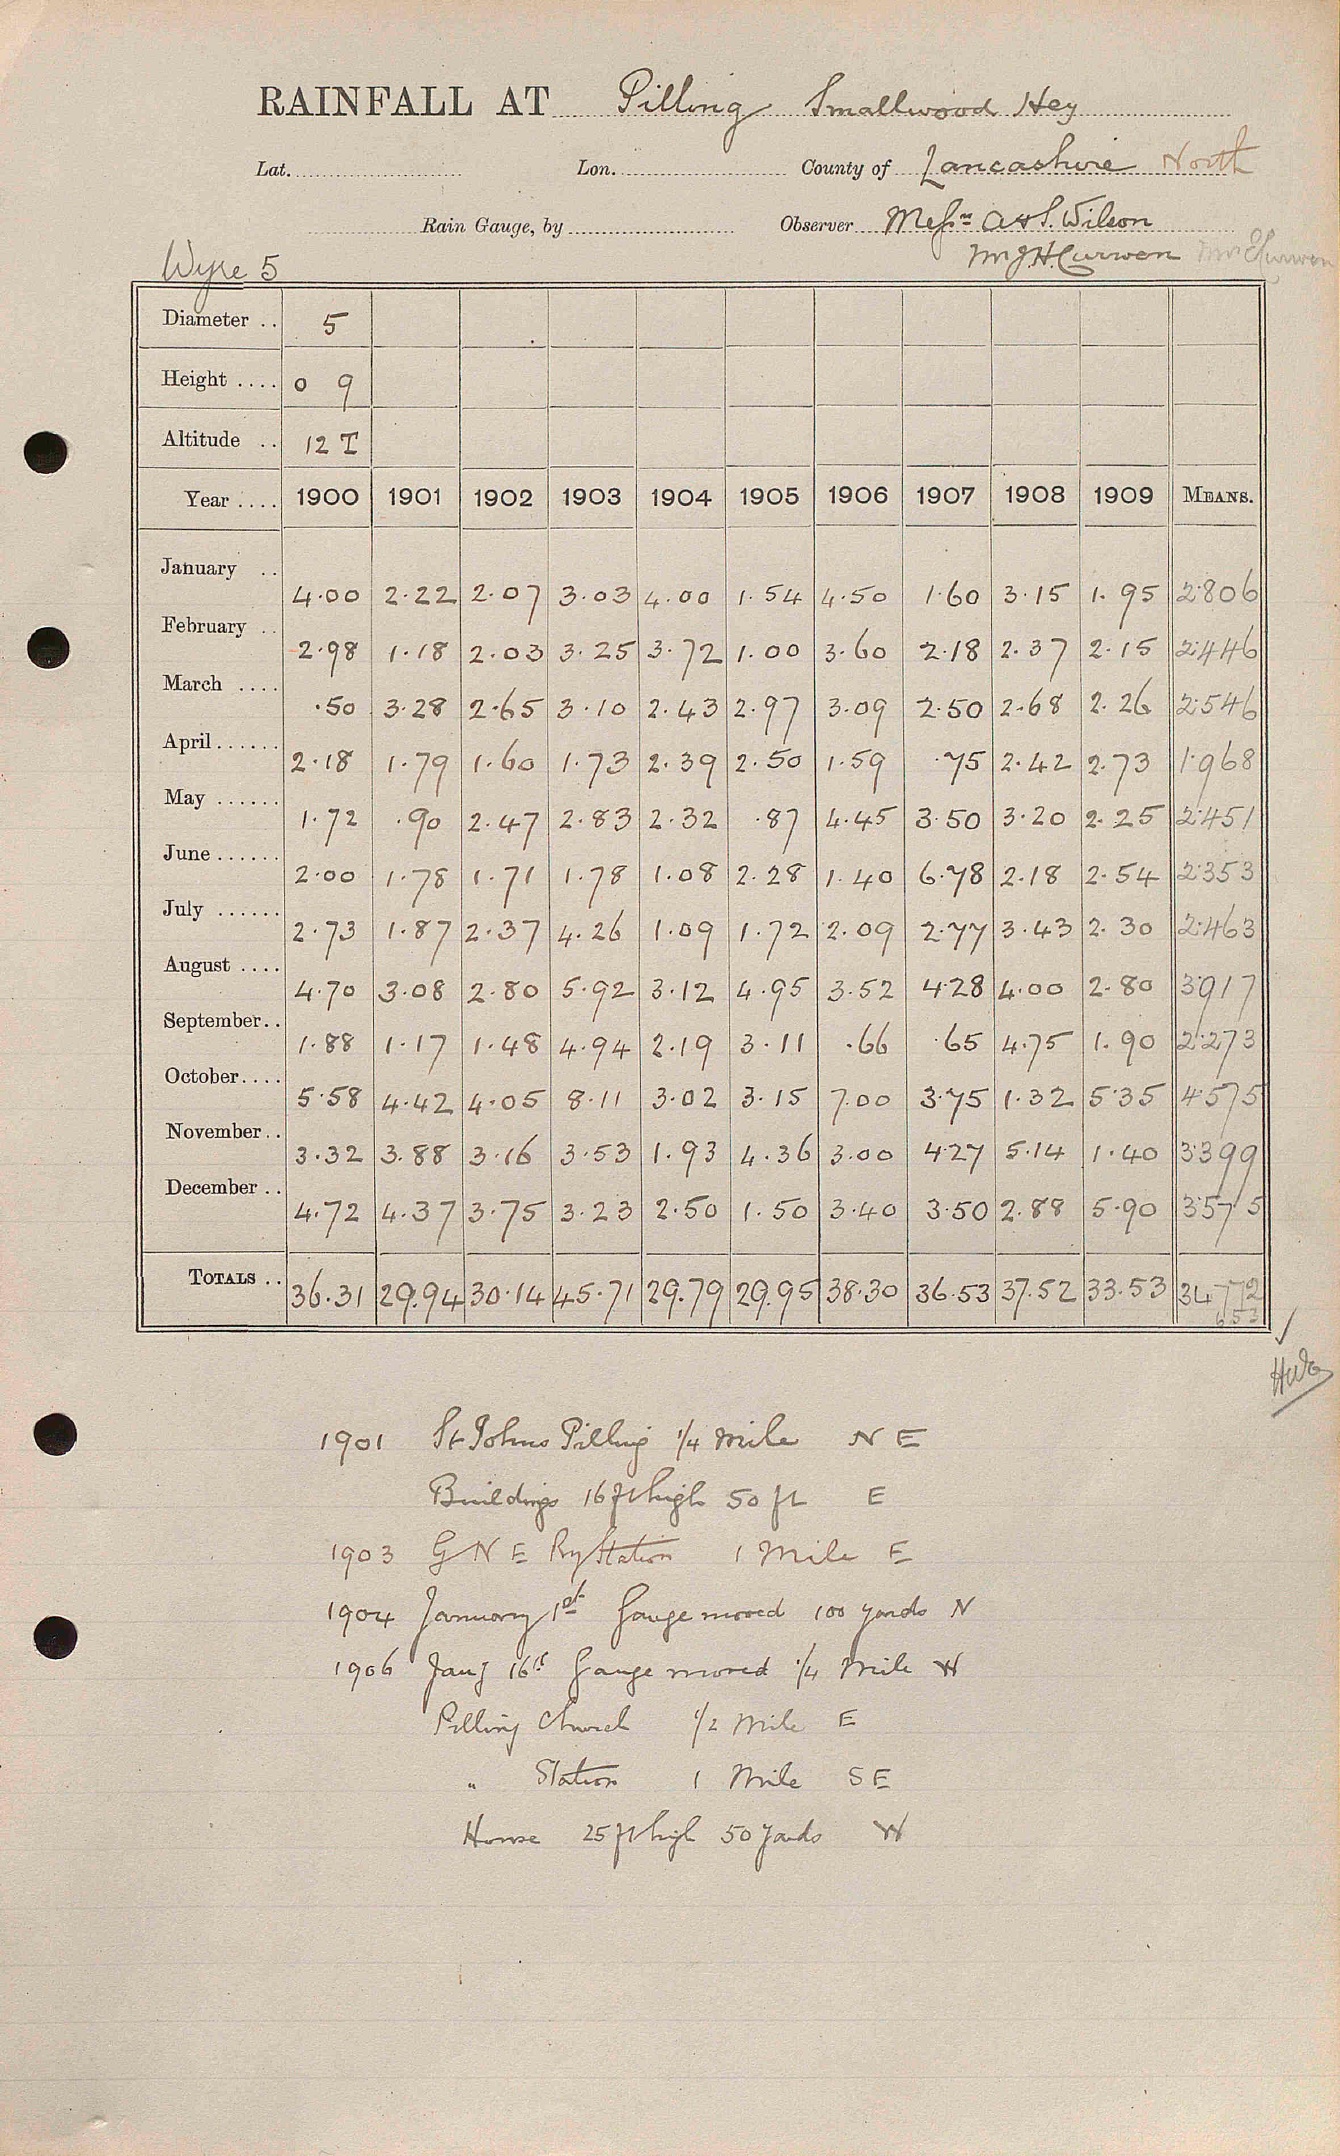 RAINFALL AT Pilling Smallwood Hey
Lat. Lon. County of Lancashire North
Rain Gauge, by Observer Messrs A & S. Wilson
Wyre 5 Mr J H Curwen Mr E Curwen
Diameter .. 5
Height .... 0 9
Altitude .. 12 T
Year .... 1900 1901 1902 1903 1904 1905 1906 1907 1908 1909 MEANS.
January .. 4.00 2.22 2.07 3.03 4.00 1.54 4.50 1.60 3.15 1.95 2.806
February .. 2.98 1.18 2.03 3.25 3.72 1.00 3.60 2.18 2.37 2.15 2.446
March .... .50 3.28 2.65 3.10 2.43 2.97 3.09 2.50 2.68 2.26 2.546
April ...... 2.18 1.79 1.60 1.73 2.39 2.50 1.59 .75 2.42 2.73 1.968
May ...... 1.72 .90 2.47 2.83 2.32 .87 4.45 3.50 3.20 2.25 2.451
June ...... 2.00 1.78 1.71 1.78 1.08 2.28 1.40 6.78 2.18 2.54 2.353
July ...... 2.73 1.87 2.37 4.26 1.09 1.72 2.09 2.77 3.43 2.30 2.463
August .... 4.70 3.08 2.80 5.92 3.12 4.95 3.52 4.28 4.00 2.80 3.917
September.. 1.88 1.17 1.48 4.94 2.19 3.11 .66 .65 4.75 1.90 2.273
October.... 5.58 4.42 4.05 8.11 3.02 3.15 7.00 3.75 1.32 5.35 4.575
November.. 3.32 3.88 3.16 3.53 1.93 4.36 3.00 4.27 5.14 1.40 3.399
December .. 4.72 4.37 3.75 3.23 2.50 1.50 3.40 3.50 2.88 5.90 3.575
TOTALS .. 36.31 29.94 30.14 45.71 29.79 29.95 38.30 36.53 37.52 33.53 34.772
653
1901 St Johns Pilling 1/4 mile N E
Buildings 16 ft high 50 ft E
1903 G N E Ry Station 1 Mile E
1904 January 1st Gauge moved 100 yards N
1906 Jany 16th Gauge moved 1/4 Mile W
Pilling Church 1/2 Mile E
" Station 1 Mile S E
House 25 ft high 50 Yards W